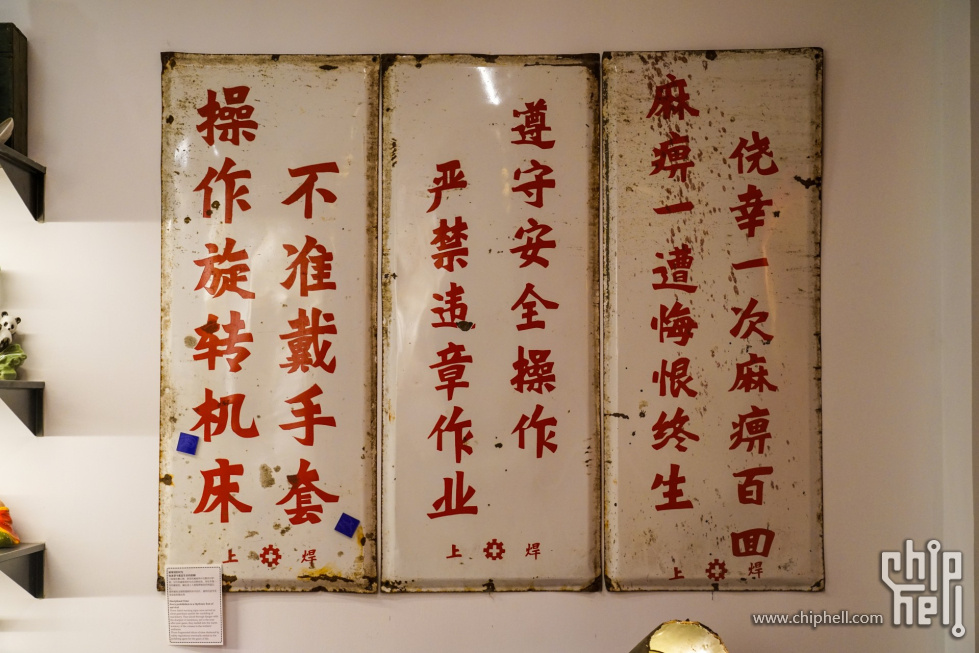 操作旋转机床
不准戴手套
上 焊
遵守安全操作
严禁违章作业
上 焊
侥幸一次麻痹百回
麻痹一遭悔恨终生
上 焊
chip
hell
www.chiphell.com